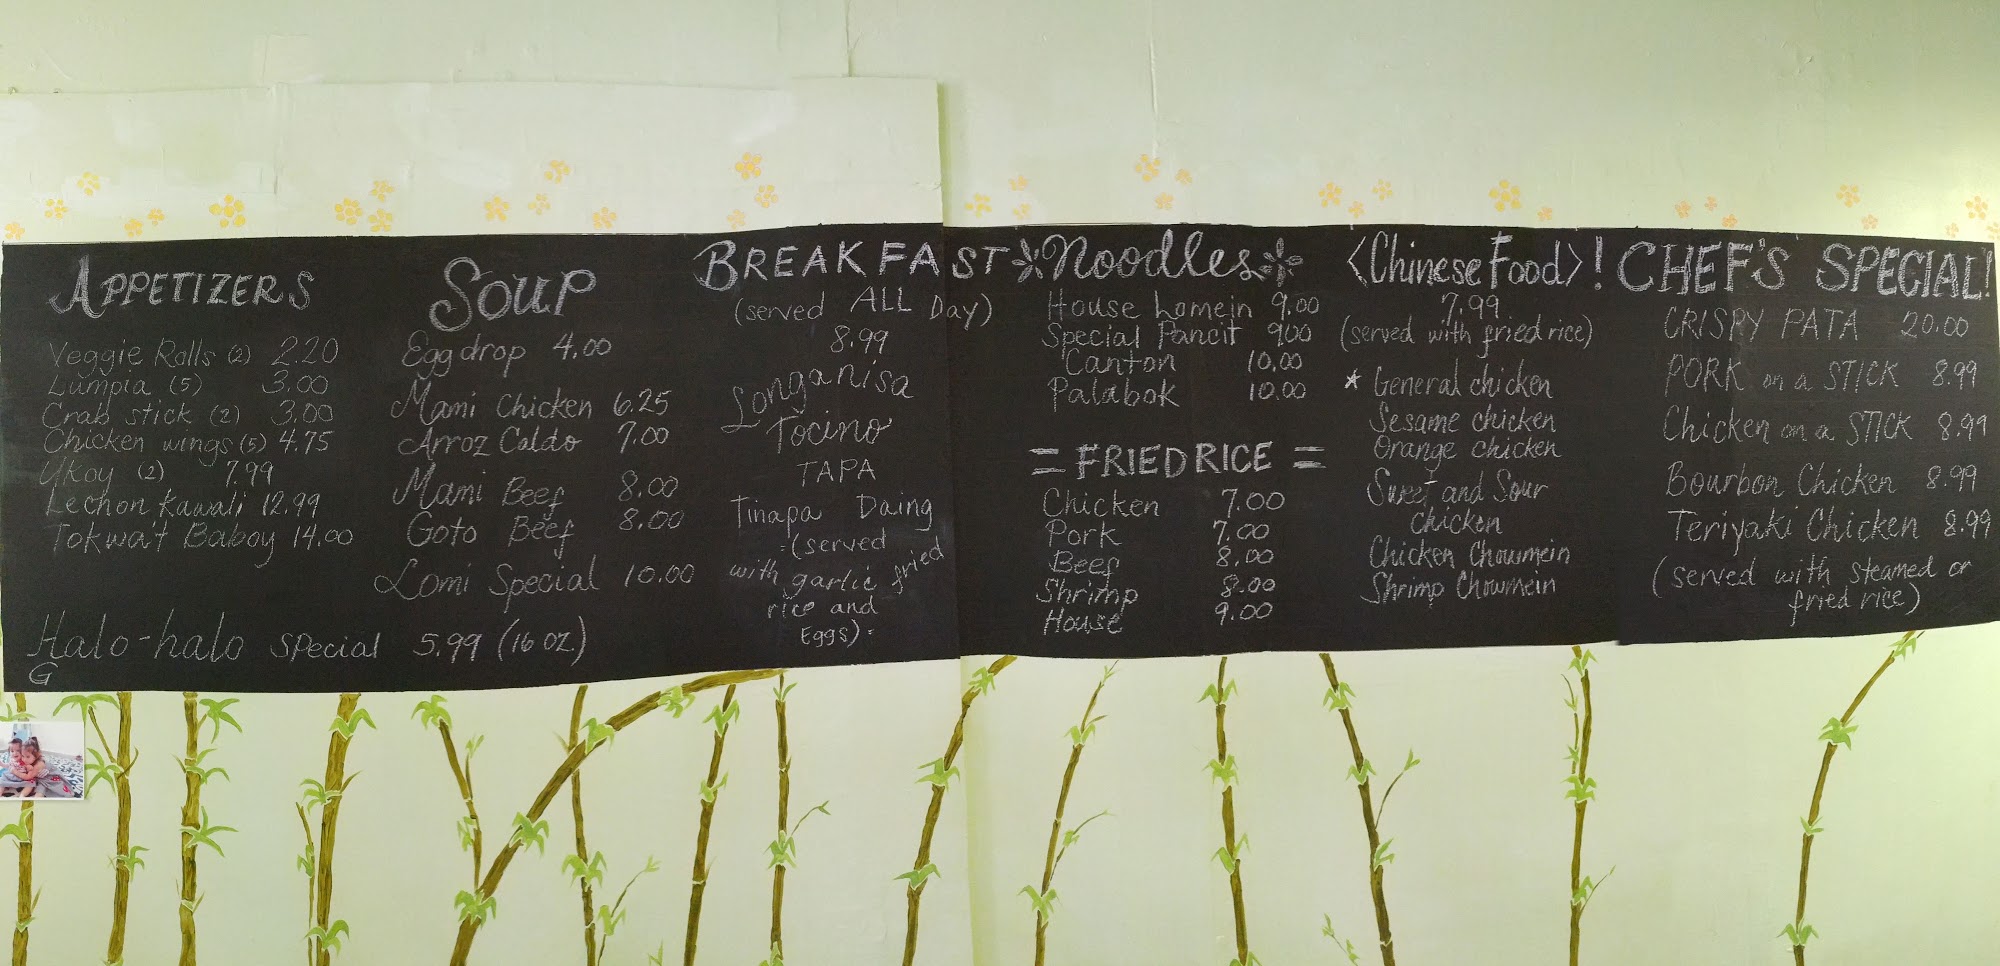 APPETIZERS
Veggie Rolls (2) 2.20
Lumpia (5) 3.00
Crab stick (2) 3.00
Chicken wings (5) 4.75
Ukoy (2) 7.99
Lechon Kawali 12.99
Tokwa't Baboy 14.00
Halo-halo special 5.99 (16 oz)
G
SOUP
Eggdrop 4.00
Mami Chicken 6.25
Arroz Caldo 7.00
Mami Beef 8.00
Goto Beef 8.00
Lomi Special 10.00
BREAKFAST
(served ALL Day)
8.99
Longanisa
Tocino
TAPA
Tinapa Daing
(served
with garlic fried
rice and
Eggs)
Noodles
House Lomein 9.00
Special Pancit 9.00
Canton 10.00
Palabok 10.00
= FRIED RICE =
Chicken 7.00
Pork 7.00
Beef 8.00
Shrimp 8.00
House 9.00
<Chinese Food>!
7.99
(served with fried rice)
* General chicken
Sesame chicken
Orange chicken
Sweet and Sour
chicken
Chicken Chowmein
Shrimp Chowmein
CHEF'S SPECIAL!
CRISPY PATA 20.00
PORK on a STICK 8.99
Chicken on a STICK 8.99
Bourbon Chicken 8.99
Teriyaki Chicken 8.99
(served with steamed or
fried rice)